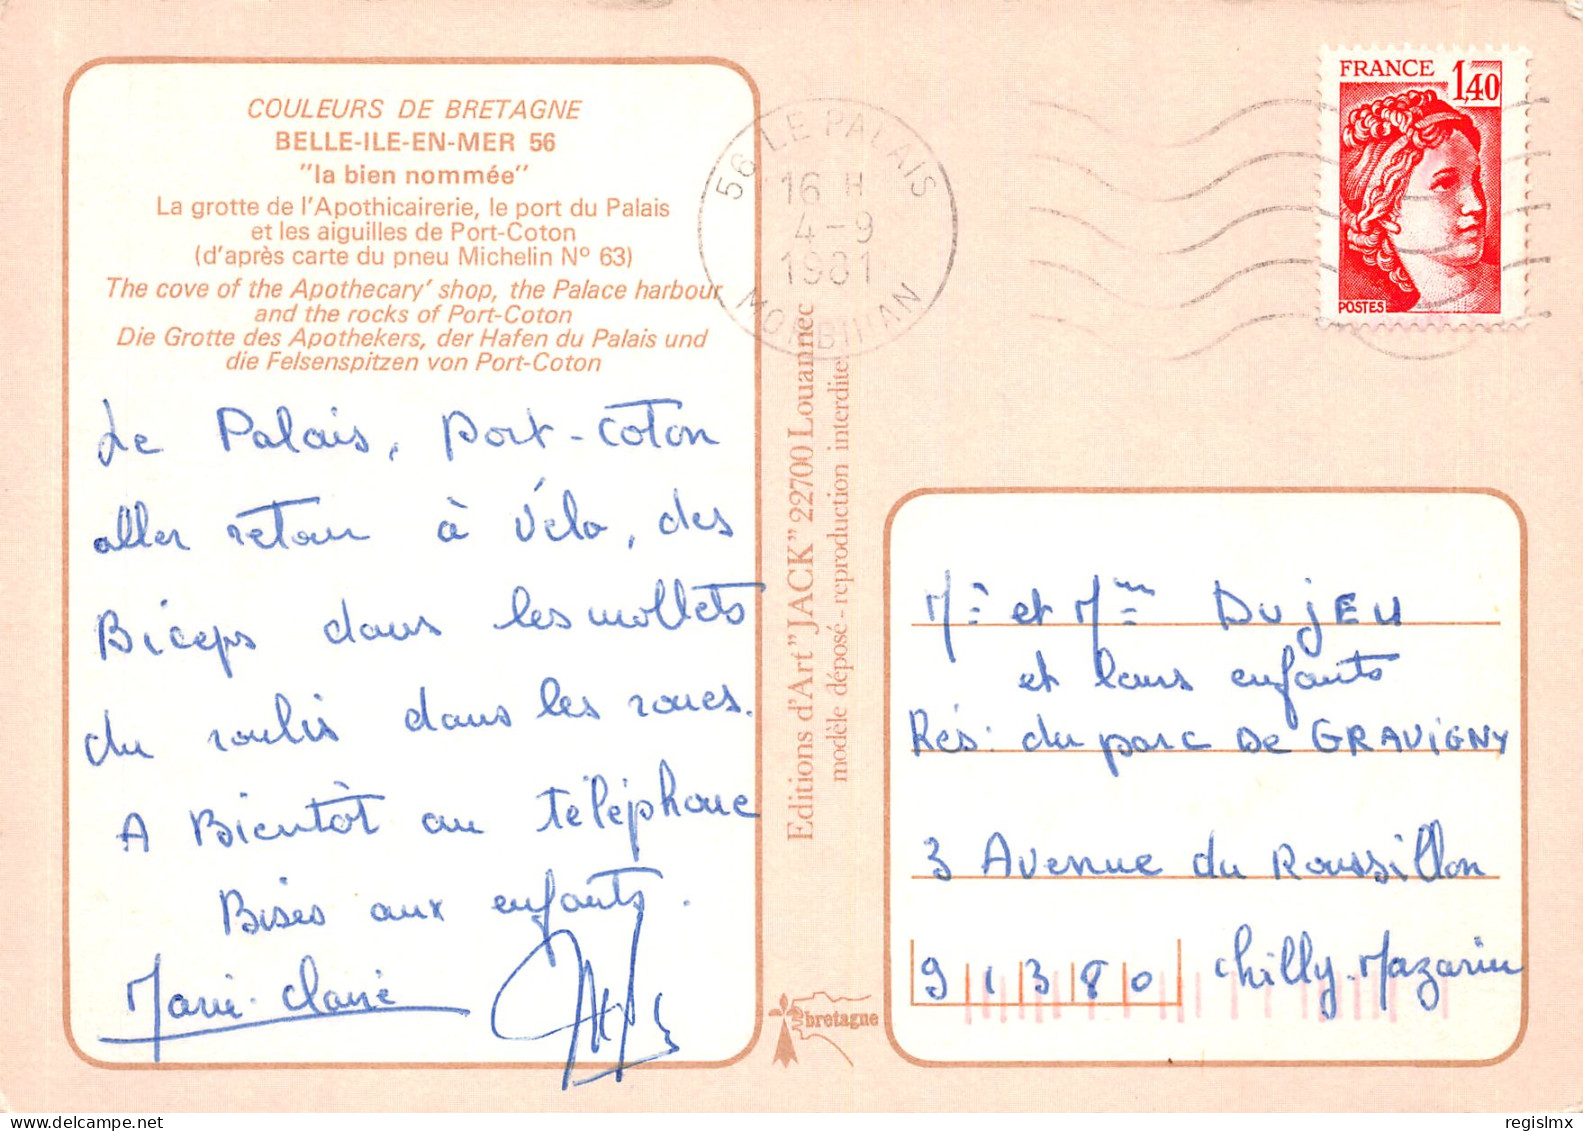 COULEURS DE BRETAGNE
BELLE-ILE-EN-MER 56
"la bien nommée"
La grotte de l'Apothicairerie, le port du Palais
et les aiguilles de Port-Coton
(d'après carte du pneu Michelin Nº 63)
The cove of the Apothecary' shop, the Palace harbour
and the rocks of Port-Coton
Die Grotte des Apothekers, der Hafen du Palais und
die Felsenspitzen von Port-Coton
Le Palais, Port-Coton
aller retour à Vélo, des
Biceps dans les mollets
du roulis dans les roues.
A Bientôt au téléphone
Bises aux enfants.
Marie-Claire
Editions d'Art "JACK" 22700 Louannec
modèle déposé - reproduction interdite
bretagne
56 LE PALAIS
16 H
4-9
1981
MORBIHAN
FRANCE 1,40
POSTES
Mr et Mme DUJEU
et leurs enfants
Rés: du parc DE GRAVIGNY
3 Avenue du Roussillon
91380 Chilly-Mazarin
regislmx